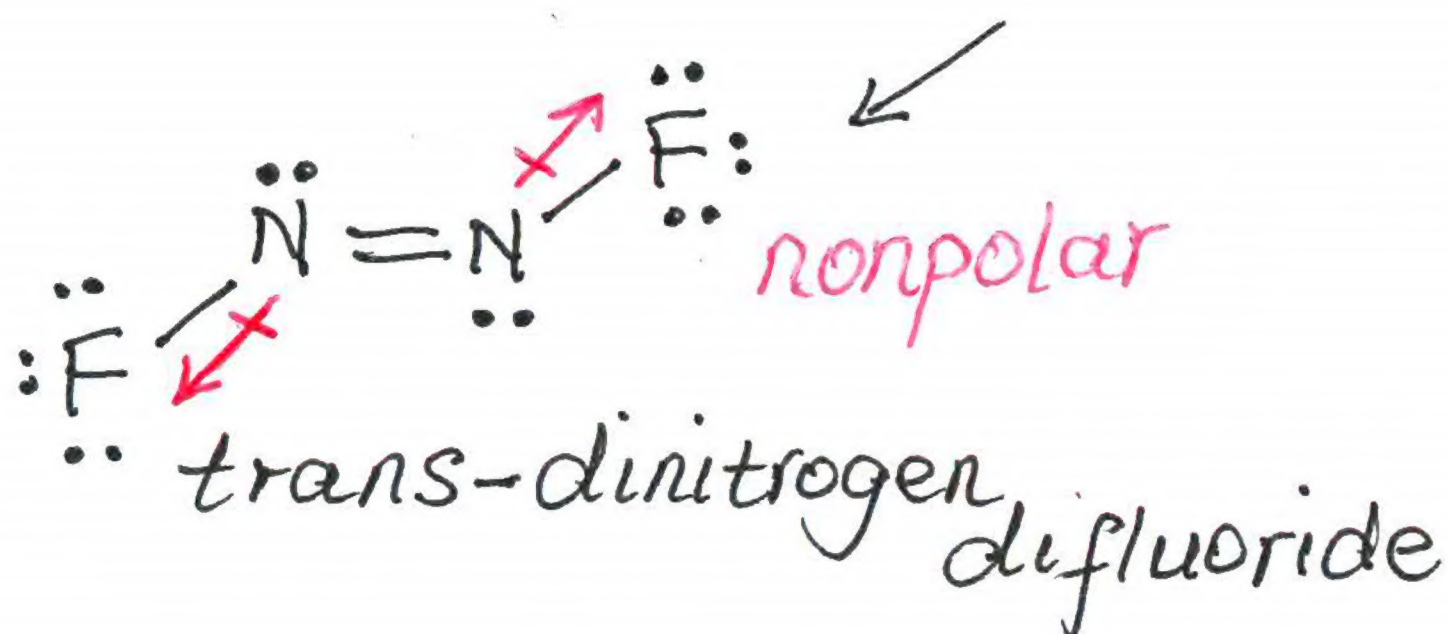 F
N = N
nonpolar
:F
trans-dinitrogen
difluoride